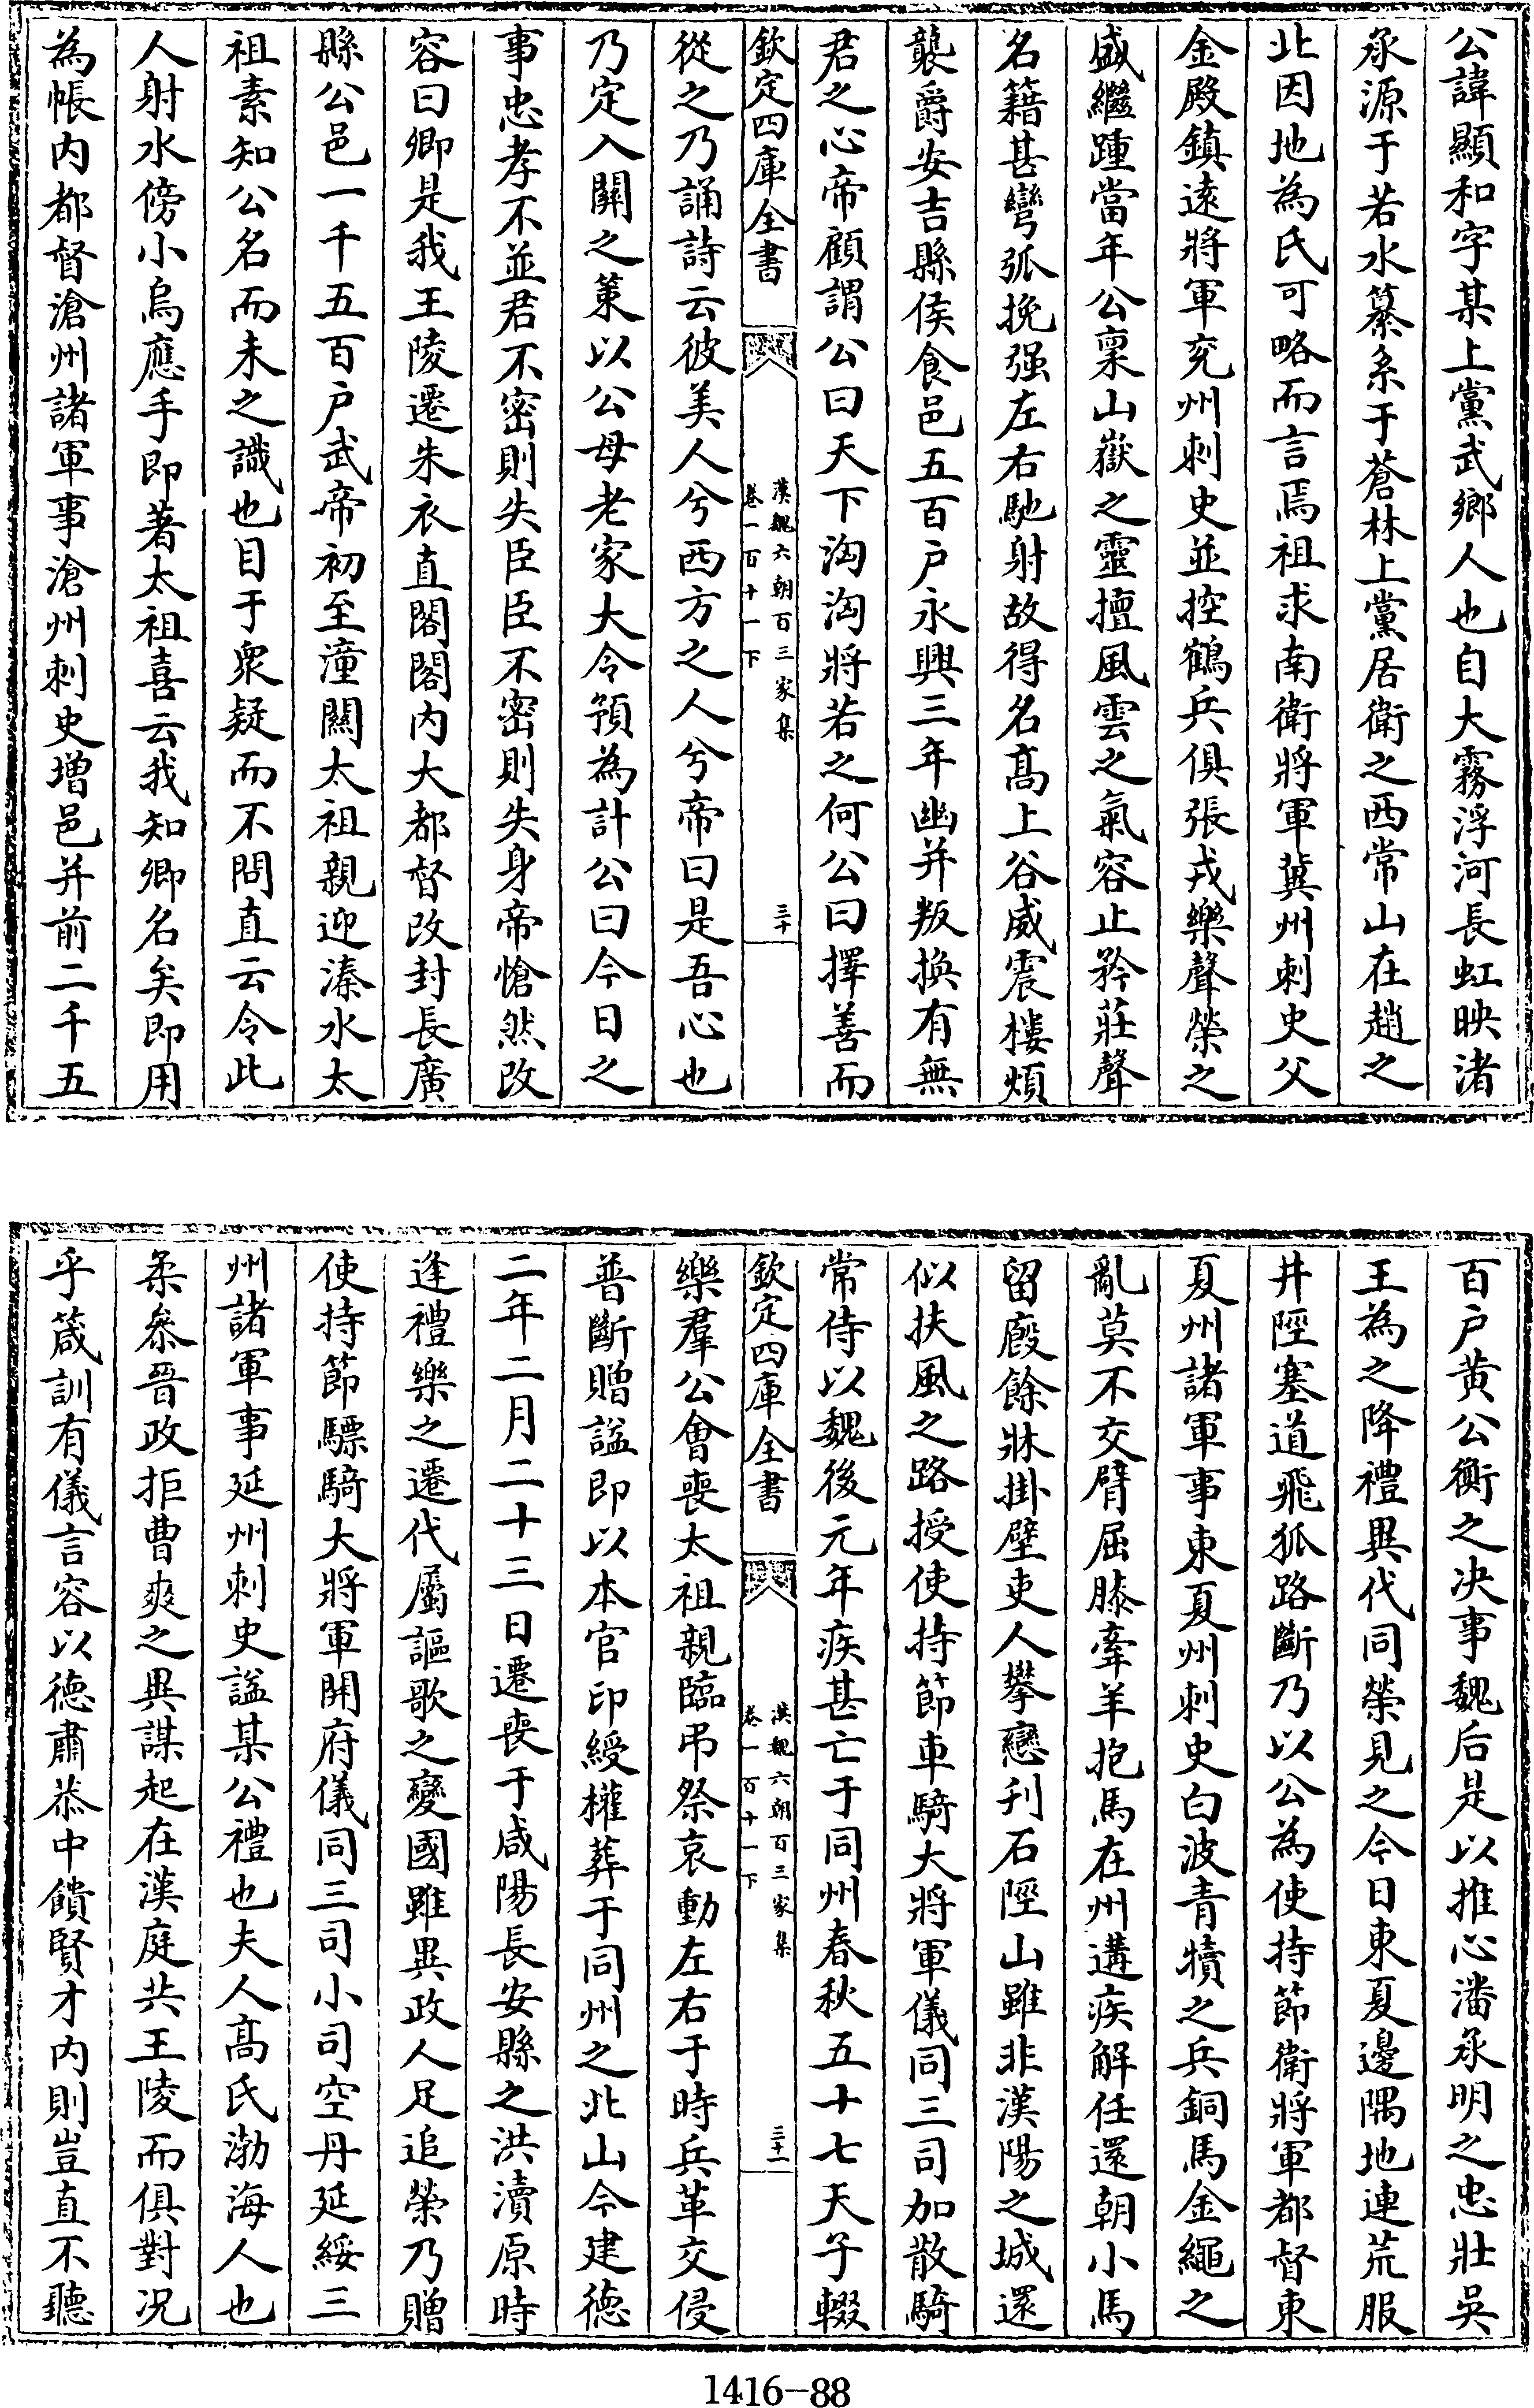 公諱顯和字某上黨武鄉人也自大霧浮河長虹映渚
承源于若水纂系于蒼林上黨居衛之西常山在趙之
北因地為氏可略而言焉祖求南衛將軍冀州刺史父
金殿鎮遠將軍兖州刺史並控鶴兵俱張戎樂聲榮之
盛繼踵當年公稟山嶽之靈擅風雲之氣容止矜莊聲
名籍甚彎弧挽强左右馳射故得名髙上谷威震樓煩
襲爵安吉縣侯食邑五百户永興三年幽并叛換有無
君之心帝顧謂公曰天下洶洶將若之何公曰擇善而
欽定四庫全書
漢魏六朝百三家集
卷一百十一下
三十
從之乃誦詩云彼美人兮西方之人兮帝曰是吾心也
乃定入關之策以公母老家大令預為計公曰今日之
事忠孝不並君不密則失臣臣不密則失身帝愴然改
容曰卿是我王陵遷朱衣直閤閤内大都督改封長廣
縣公邑一千五百户武帝初至潼關太祖親迎溱水太
祖素知公名而未之識也目于衆疑而不問直云令此
人射水傍小鳥應手即著太祖喜云我知卿名矣即用
為帳内都督滄州諸軍事滄州刺史增邑并前二千五
百户黄公衡之决事魏后是以推心潘承明之忠壯吳
王為之降禮異代同榮見之今日東夏邊隅地連荒服
井陘塞道飛狐路斷乃以公為使持節衛將軍都督東
夏州諸軍事東夏州刺史白波青犢之兵銅馬金繩之
亂莫不交臂屈膝牽羊抱馬在州遘疾解任還朝小馬
留廐餘牀掛壁吏人攀戀刋石陘山雖非漢陽之城還
似扶風之路授使持節車騎大將軍儀同三司加散騎
常侍以魏後元年疾甚亡于同州春秋五十七天子輟
欽定四庫全書
漢魏六朝百三家集
卷一百十一下
三十一
樂羣公會喪太祖親臨弔祭哀動左右于時兵革交侵
普斷贈謚即以本官印綬權葬于同州之北山今建徳
二年二月二十三日遷喪于咸陽長安縣之洪瀆原時
逢禮樂之遷代屬謳歌之變國雖異政人足追榮乃贈
使持節驃騎大將軍開府儀同三司小司空丹延綏三
州諸軍事延州刺史謚某公禮也夫人髙氏渤海人也
柔叅晉政拒曹爽之異謀起在漢庭共王陵而俱對况
乎箴訓有儀言容以徳肅恭中饋賢才内則豈直不聽
1416-88